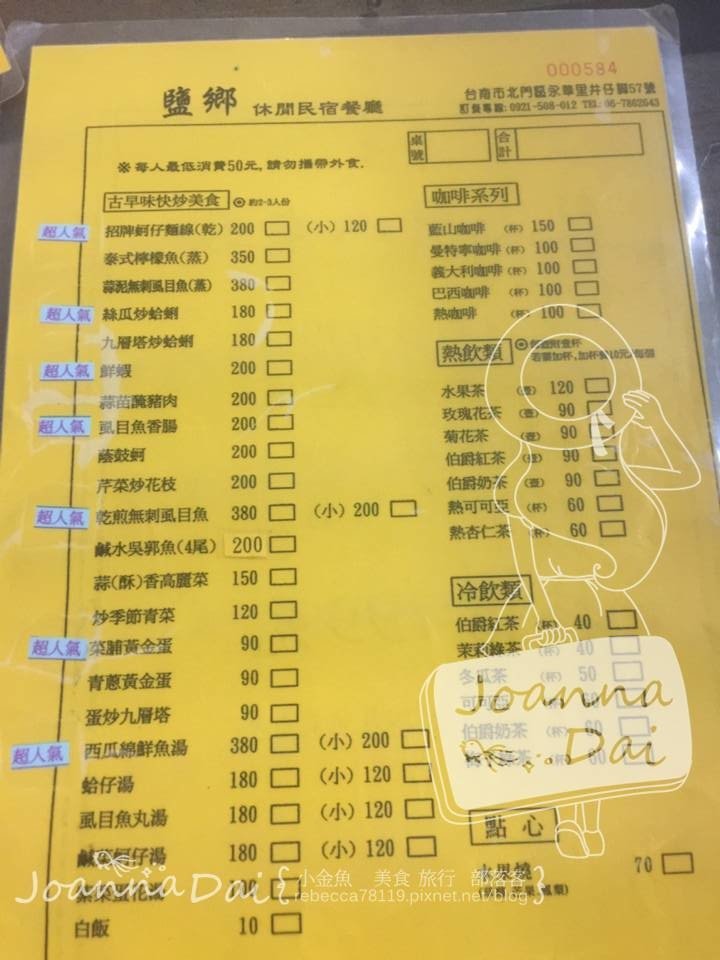 000584
鹽鄉 休閒民宿餐廳
台南市北門區永華里井仔腳57號
訂餐專線:0921-508-012 TEL:06-7862643
桌號
合計
※每人最低消費50元,請勿攜帶外食.
古早味快炒美食 ⊙約2-3人份
超人氣 招牌蚵仔麵線(乾) 200 (小) 120
泰式檸檬魚(蒸) 350
蒜泥無刺虱目魚(蒸) 380
超人氣 絲瓜炒蛤蜊 180
九層塔炒蛤蜊 180
超人氣 鮮蝦 200
蒜苗醃豬肉 200
超人氣 虱目魚香腸 200
蔭鼓蚵 200
芹菜炒花枝 200
超人氣 乾煎無刺虱目魚 380 (小) 200
鹹水吳郭魚(4尾) 200
蒜(酥)香高麗菜 150
炒季節青菜 120
超人氣 菜脯黃金蛋 90
青蔥黃金蛋 90
蛋炒九層塔 90
超人氣 西瓜綿鮮魚湯 380 (小) 200
蛤仔湯 180 (小) 120
虱目魚丸湯 180 (小) 120
蚵仔湯 180 (小) 120
白飯 10
咖啡系列
藍山咖啡 (杯) 150
曼特寧咖啡 (杯) 100
義大利咖啡 (杯) 100
巴西咖啡 (杯) 100
熱咖啡 (杯) 100
熱飲類
若需加杯,加杯費10元/每個
水果茶 (壺) 120
玫瑰花茶 (壺) 90
菊花茶 (壺) 90
伯爵紅茶 (壺) 90
伯爵奶茶 (壺) 90
熱可可亞 (杯) 60
熱杏仁茶 (杯) 60
冷飲類
伯爵紅茶 (杯) 40
茉莉綠茶 (杯) 40
冬瓜茶 (杯) 50
可可亞 (杯) 60
伯爵奶茶 (杯) 60
茶 (杯) 60
點心
水果燒 70
Joanna
Dai
JoannaDai {小金魚 美食 旅行 部落客}
rebecca78119.pixnet.net/blog